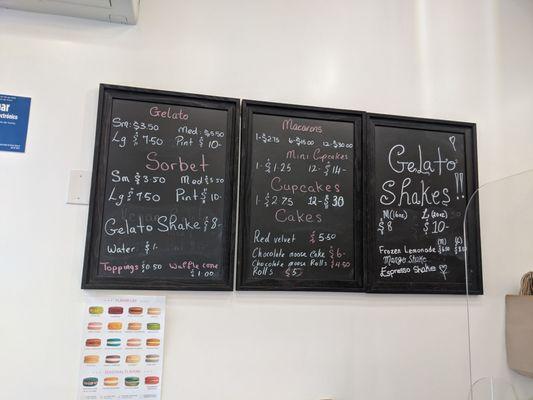 Gelato
Sm: $3.50 Med: $5.50
Lg $7.50 Pint $10-
Sorbet
Sm $3.50 Med $5.50
Lg $7.50 Pint $10-
Gelato Shake $8-
Water $1-
Toppings $0.50 Waffle cone
$1.00
Macarons
1-$2.75 6-$15.00 12-$30.00
Mini Cupcakes
1-$1.25 12-$14-
Cupcakes
1-$2.75 12-$30
Cakes
Red velvet $5.50
Chocolate moose cake $6-
Chocolate moose Rolls $4.50
Rolls $5
Gelato
Shakes!!
M(16oz) L(20oz)
$8 $10-
Frozen Lemonade
Mango Shake
Espresso Shake
FLAVOR LIST
SEASONAL FLAVORS